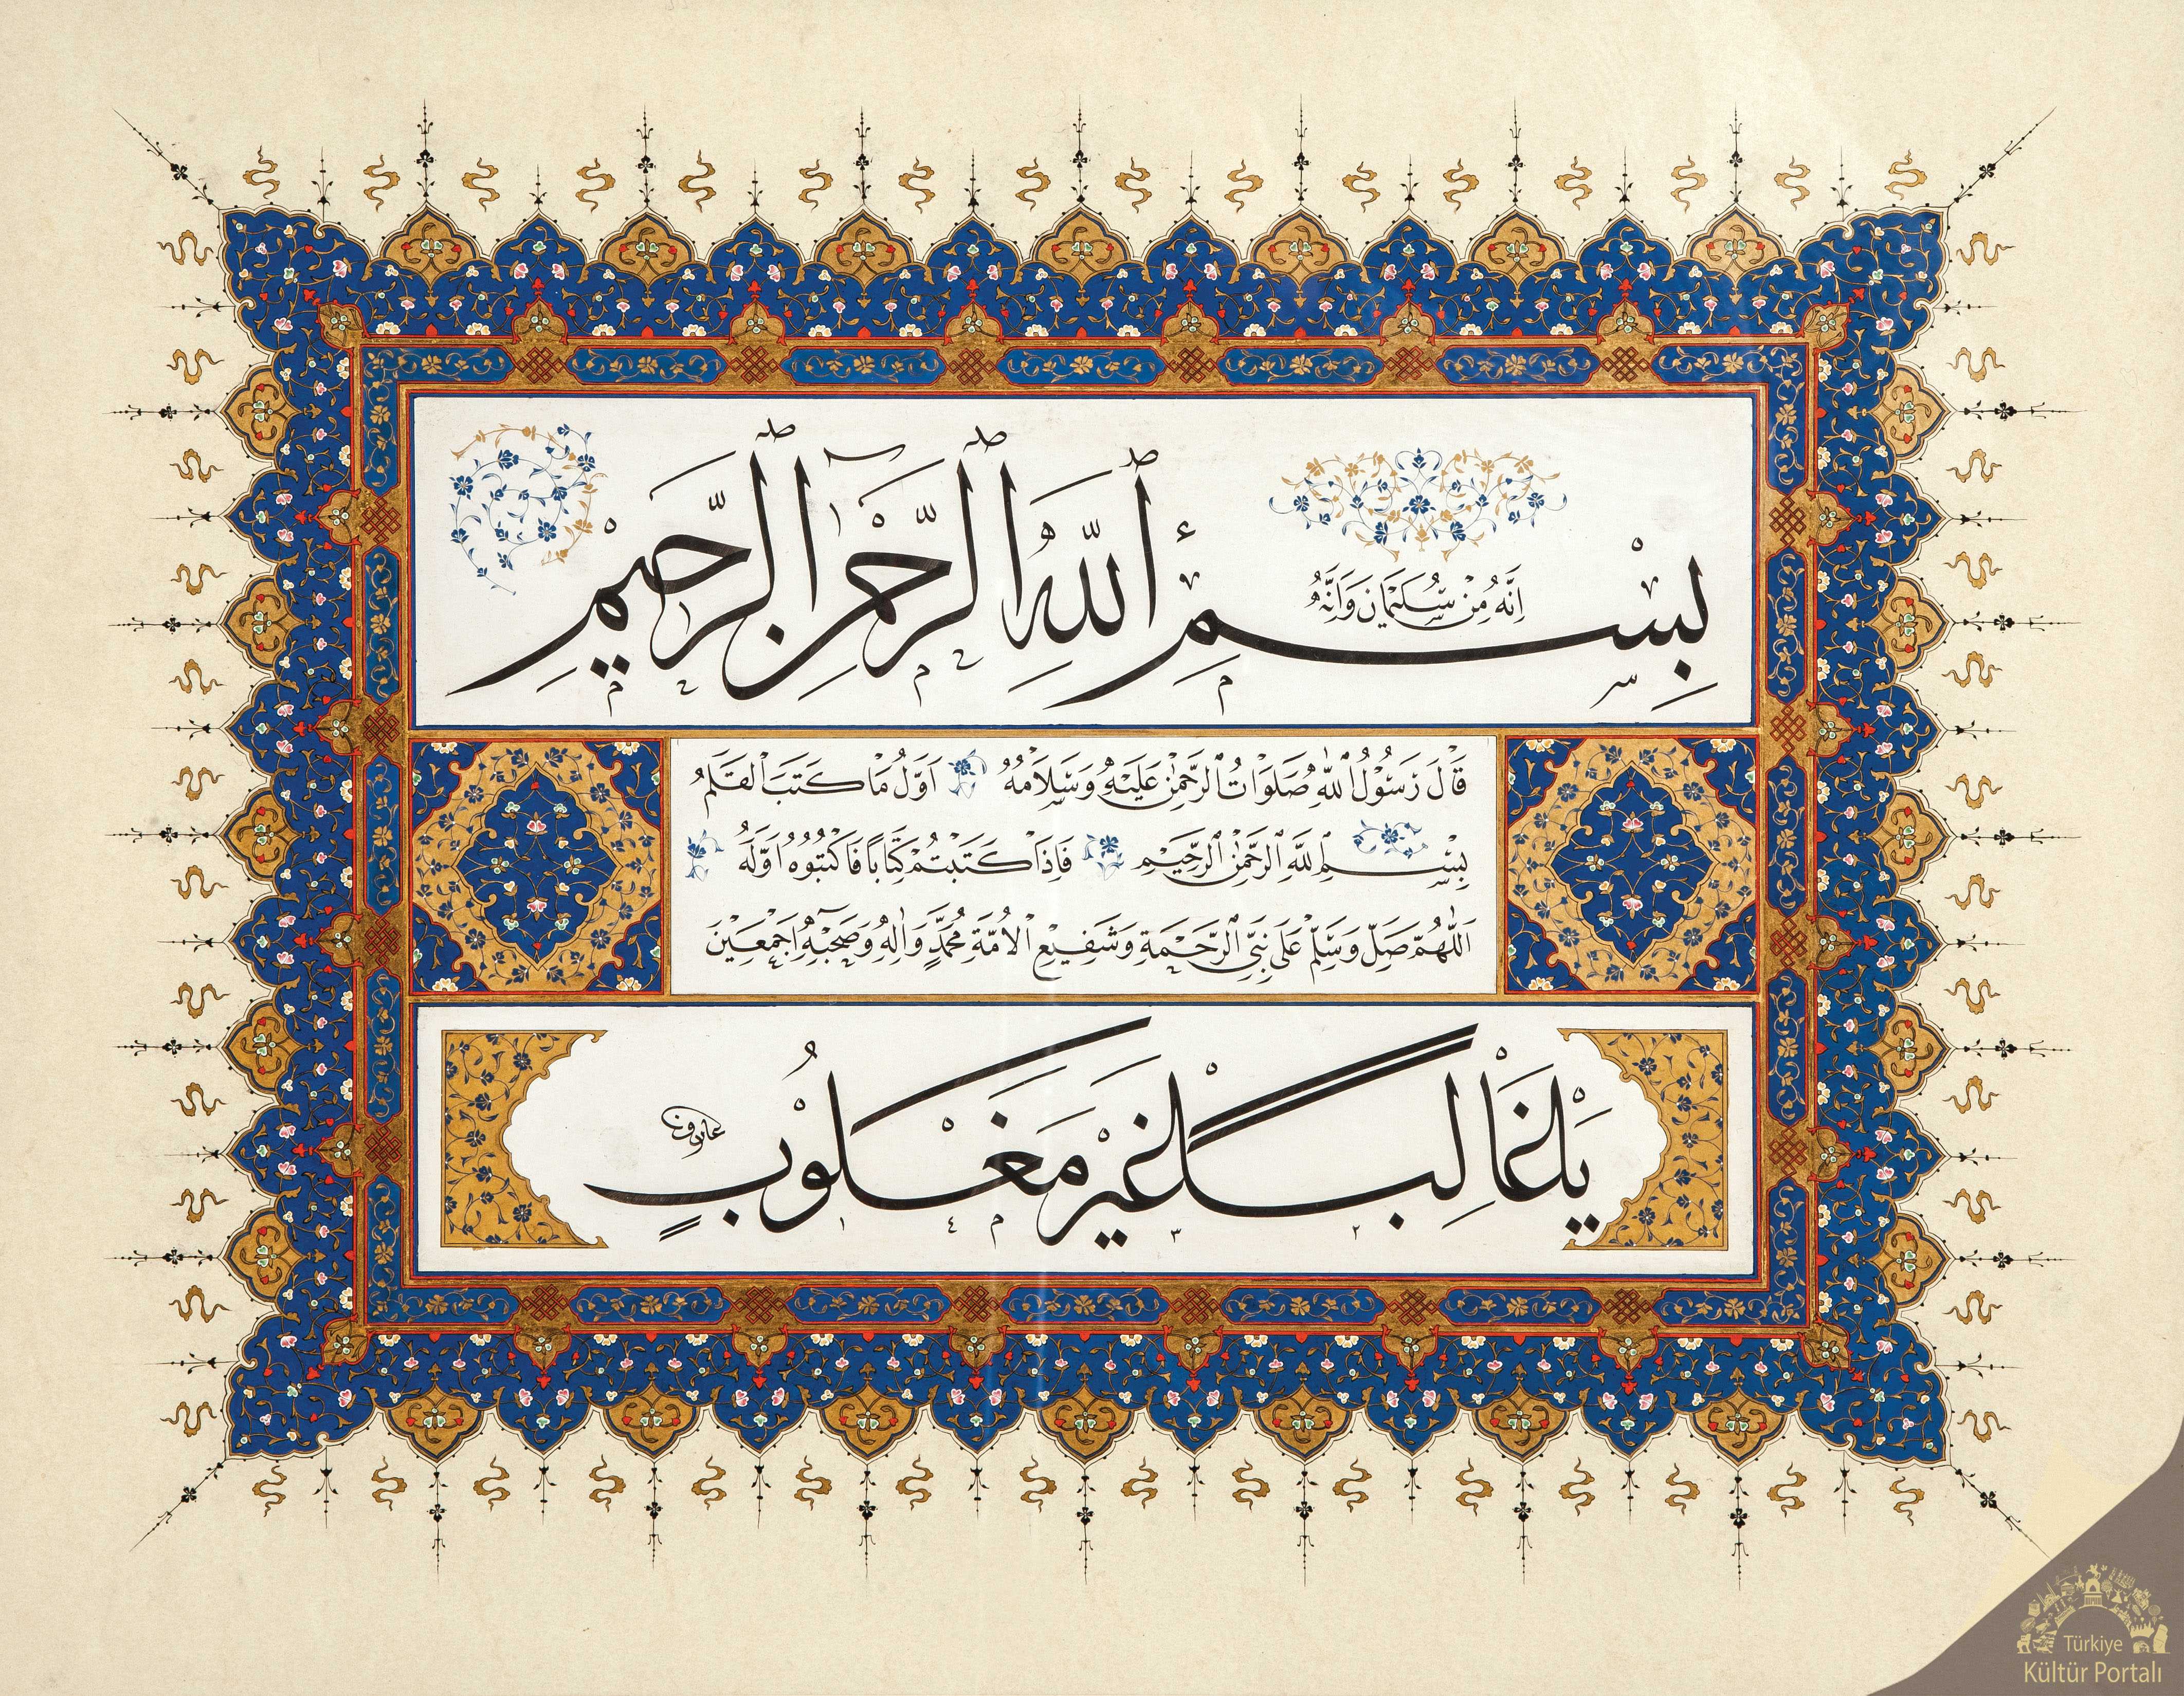 إِنَّهُ مِنْ سُلَيْمَانَ وَإِنَّهُ
بِسْمِ ٱللّٰهِ ٱلرَّحْمٰنِ ٱلرَّحِيمِ
قَالَ رَسُولُ اللّٰهِ صَلَوَاتُ الرَّحْمٰنِ عَلَيْهِ وَسَلَامُهُ اَوَّلُ مَا كَتَبَ الْقَلَمُ
بِسْمِ اللّٰهِ الرَّحْمٰنِ الرَّحِيمِ فَاِذَا كَتَبْتُمْ كِتَابًا فَاكْتُبُوهُ اَوَّلَهُ
اَللّٰهُمَّ صَلِّ وَسَلِّمْ عَلٰى نَبِيِّ الرَّحْمَةِ وَشَفِيعِ الْاُمَّةِ مُحَمَّدٍ وَاٰلِهِ وَصَحْبِهِ اَجْمَعِينَ
غَيْرَ مَغْلُوبٍ
Türkiye
Kültür Portalı